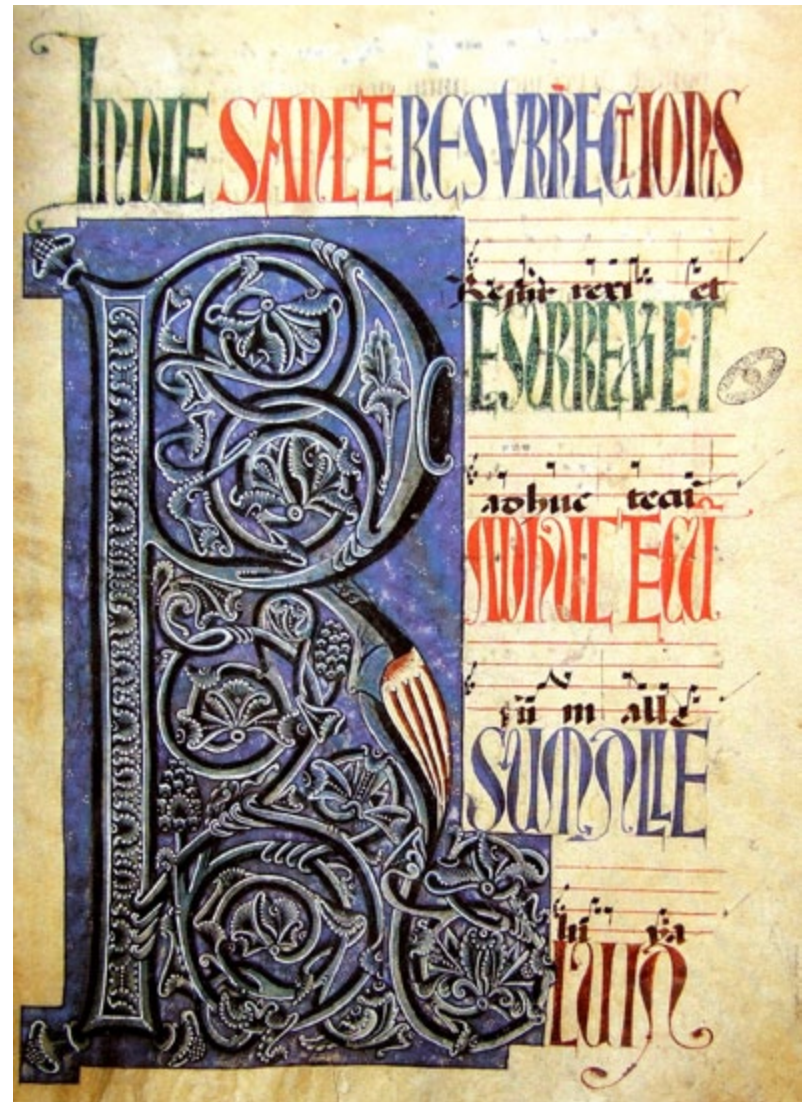 IN DIE SANCTE RESURRECTIONIS
Resur rexi et
RESURREXI ET
adhuc tecū
ADHUC TECU
sū m alle
SUM ALLE
lu ya
LUIA